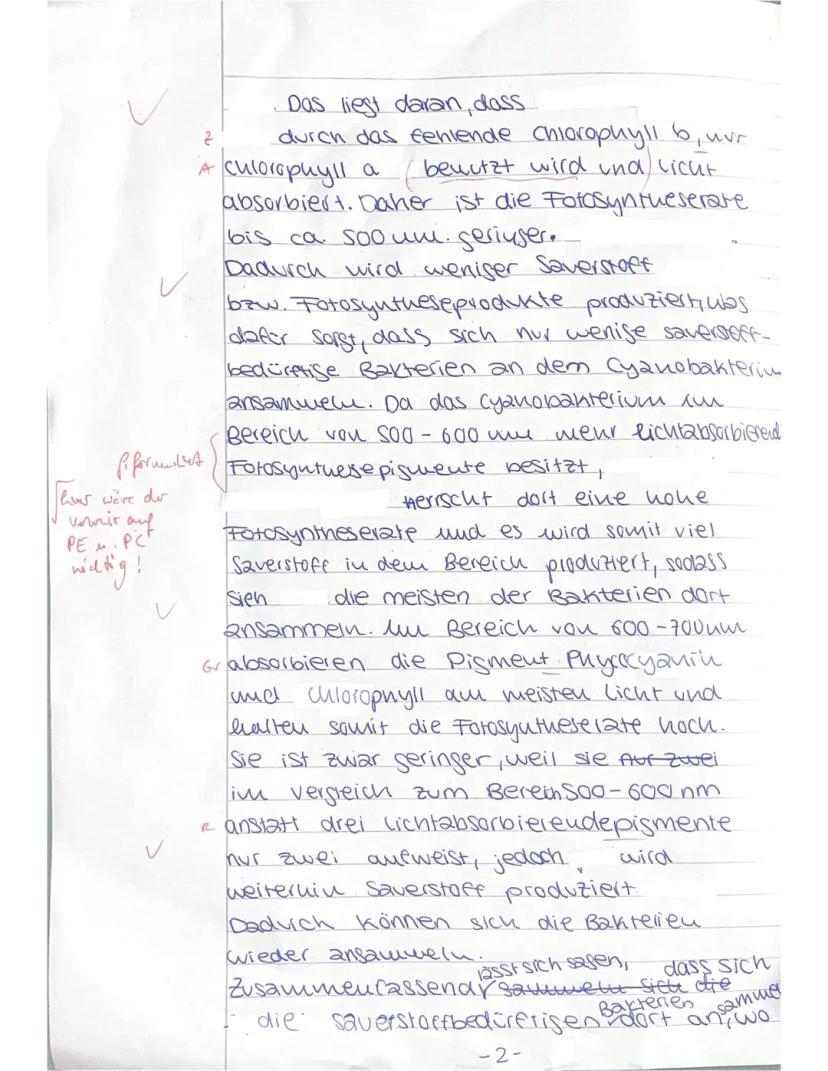 Das liegt daran, dass
Z durch das fehlende Chlorophyll b, nur
A Chlorophyll a (benutzt wird und) Licht
absorbiert. Daher ist die Fotosyntheserate
bis ca. 500 nm. geringer.
Dadurch wird weniger Sauerstoff
bzw. Fotosyntheseprodukte produziert, was
dafür sorgt, dass sich nur wenige sauerstoff-
bedürftige Bakterien an dem Cyanobakterium
ansammeln. Da das Cyanobakterium im
Bereich von 500-600 nm mehr lichtabsorbierend
Fotosynthesepigmente besitzt,
herrscht dort eine hohe
hier wäre der
Verweis auf
PE u. PC
wichtig!
Fotosyntheserate und es wird somit viel
Sauerstoff in dem Bereich produziert, sodass
sich die meisten der Bakterien dort
ansammeln. Im Bereich von 600-700 nm
Gr absorbieren die Pigment Phycocyanin
und Chlorophyll am meisten Licht und
halten somit die Fotosyntheserate hoch.
Sie ist zwar geringer, weil sie Auf zwei
im Vergleich zum Bereich 500-600 nm
R anstatt drei lichtabsorbierendepigmente
nur zwei aufweist, jedoch wird
weiterhin Sauerstoff produziert
Dadurch können sich die Bakterien
wieder ansammeln.
Zusammenfassend lässt sich sagen, dass sich
sammeln sich die
die sauerstoffbedürftigen Bakterien dort an, wo
-2-